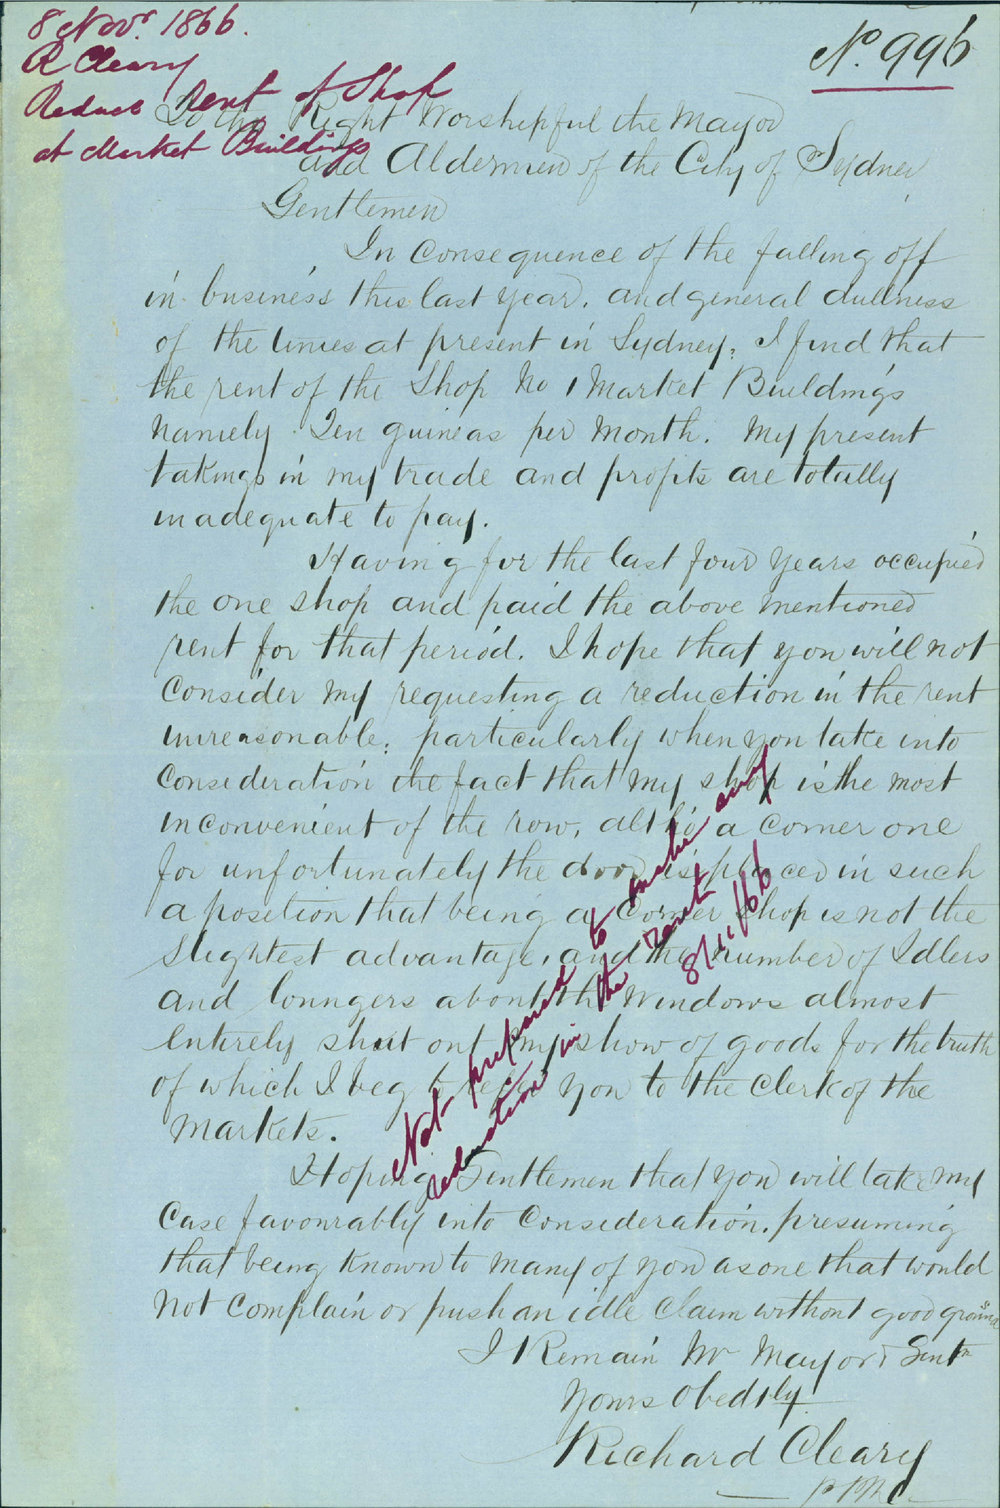 8 Novr. 1866.
R Cleary
Reduce Rent of Shop
at Market Buildings
No. 996
To the Right Worshipful the Mayor
and Aldermen of the City of Sydney
Gentlemen
In Consequence of the falling off
in business this last year. and general dullness
of the times at present in Sydney, I find that
the rent of the Shop No 1 Market Buildings
namely Ten guineas per Month. My present
takings in my trade and profits are totally
inadequate to pay.
Having for the last four years occupied
the one shop and paid the above mentioned
rent for that period. I hope that you will not
Consider my requesting a reduction in the rent
unreasonable; particularly when you take into
Consideration the fact that my shop is the most
inconvenient of the row, altho a corner one
for unfortunately the door is placed in such
a position that being a Corner Shop is not the
Slightest advantage, and the number of Idlers
and loungers about the Windows almost
entirely shut out my show of goods for the truth
of which I beg to refer you to the Clerk of the
Markets.
Hoping Gentlemen that you will take my
Case favourably into Consideration. presuming
that being known to many of you as one that would
not Complain or push an idle Claim without good ground
I Remain Mr Mayor & Gentn
Yours Obedtly
Richard Cleary
Not prepared to make any
reduction in the Rent
8/11/66